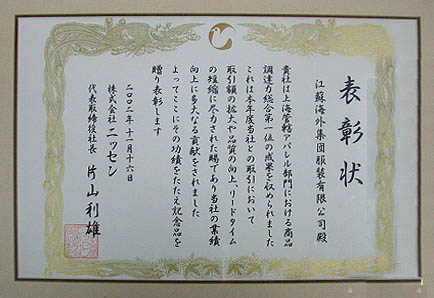 表彰状
江蘇海外集団服装有限公司殿
貴社は上海管轄アパレル部門における商品
調達力総合第一位の成果を収められました
これは本年度当社との取引において
取引額の拡大や品質の向上、リードタイム
の短縮に尽力された賜であり当社の業績
向上に多大なる貢献をされました
よってここにその功績をたたえ記念品を
贈り表彰します
二〇〇二年十二月十六日
株式会社ニッセン
代表取締役社長 片山利雄